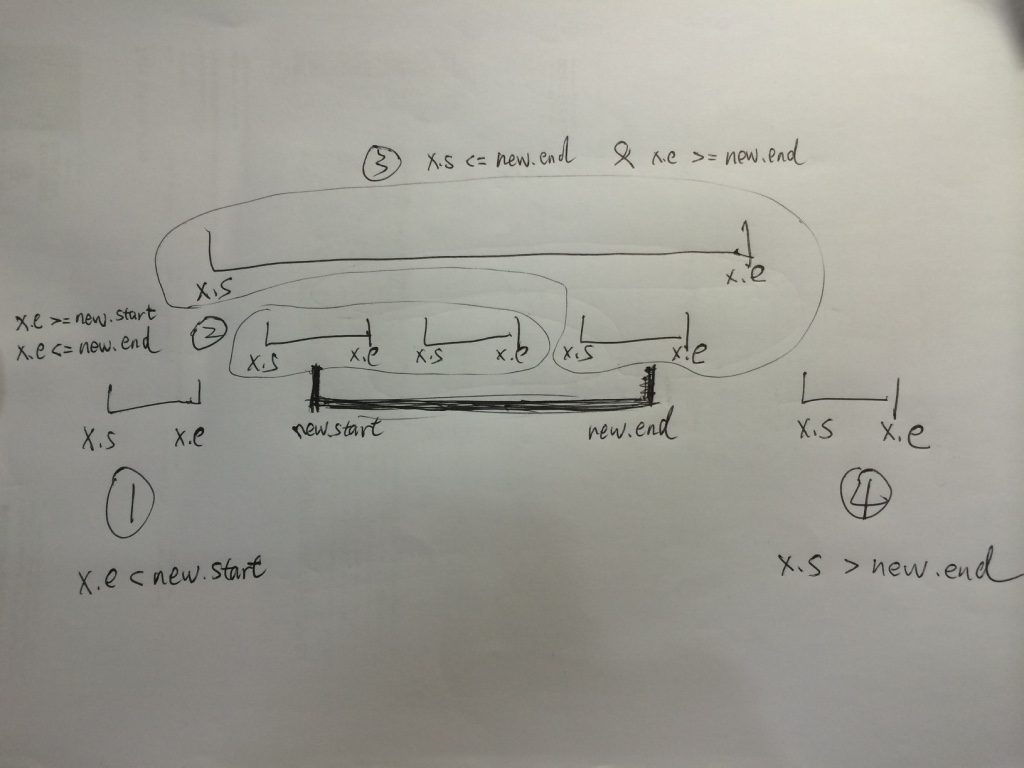 ③ x.s <= new.end & x.e >= new.end
x.s x.e
x.e >= new.start
x.e <= new.end
②
x.s x.e x.s x.e x.s x.e
x.s x.e new.start new.end x.s x.e
① ④
x.e < new.start x.s > new.end